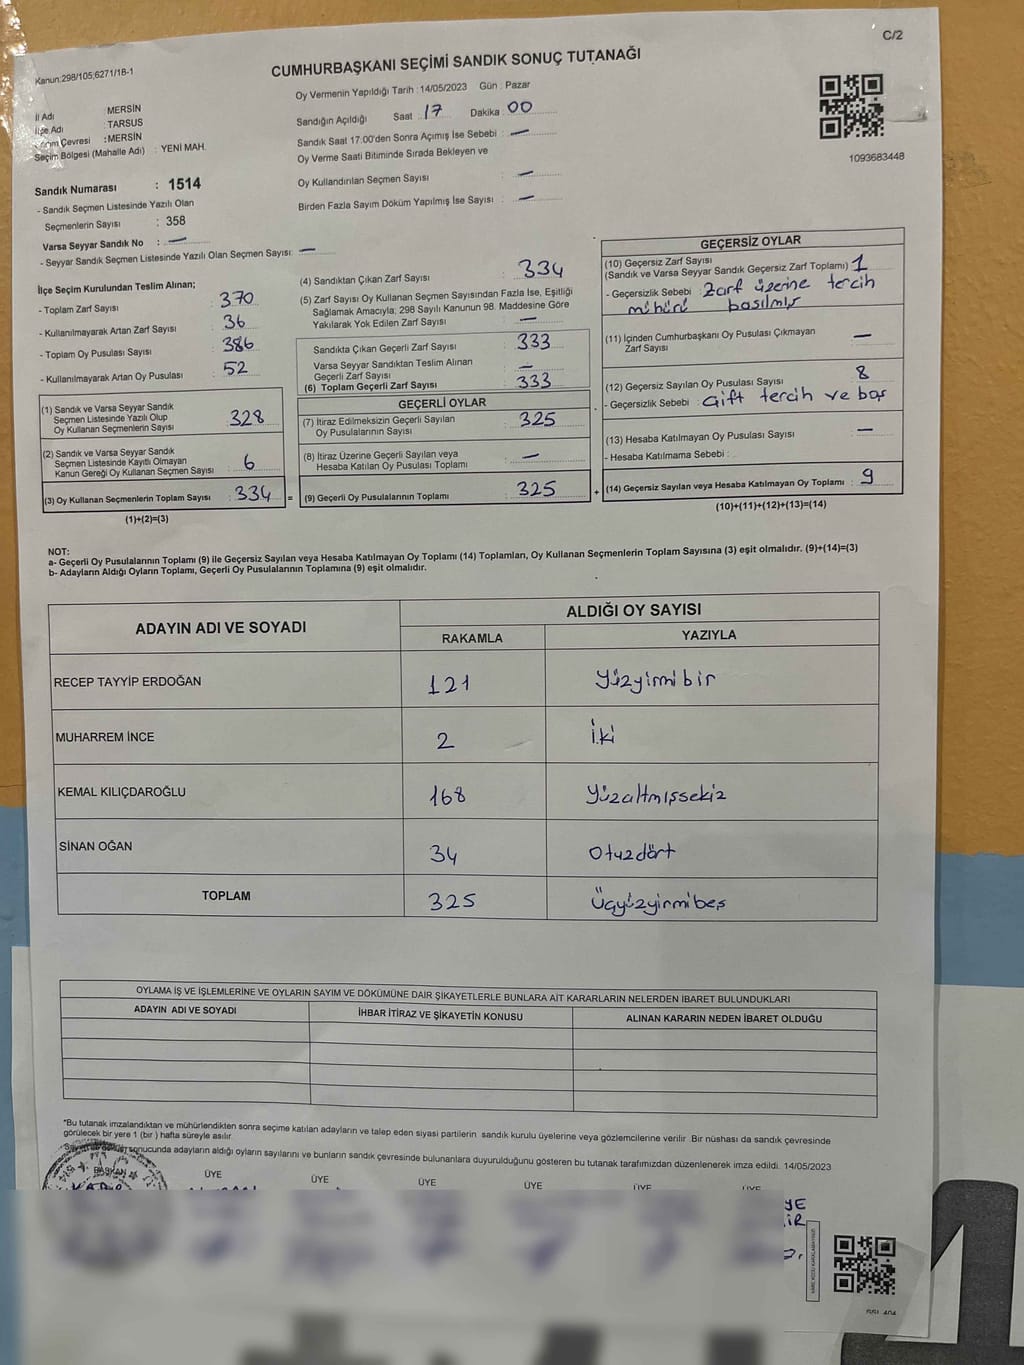 C/2
Kanun:298/105,6271/18-1
CUMHURBAŞKANI SEÇİMİ SANDIK SONUÇ TUTANAĞI
Oy Vermenin Yapıldığı Tarih : 14/05/2023 Gün : Pazar
İl Adı : MERSİN
İlçe Adı : TARSUS
Çevresi : MERSİN
Seçim Bölgesi (Mahalle Adı) : YENİ MAH.
Sandığın Açıldığı Saat : 17 Dakika : 00
Sandık Saat 17:00'den Sonra Açılmış İse Sebebi : —
Oy Verme Saati Bitiminde Sırada Bekleyen ve
Oy Kullandırılan Seçmen Sayısı : —
Birden Fazla Sayım Döküm Yapılmış İse Sayısı : —
1093683448
Sandık Numarası : 1514
- Sandık Seçmen Listesinde Yazılı Olan
Seçmenlerin Sayısı : 358
Varsa Seyyar Sandık No : —
- Seyyar Sandık Seçmen Listesinde Yazılı Olan Seçmen Sayısı: —
İlçe Seçim Kurulundan Teslim Alınan;
- Toplam Zarf Sayısı : 370
- Kullanılmayarak Artan Zarf Sayısı : 36
- Toplam Oy Pusulası Sayısı : 386
- Kullanılmayarak Artan Oy Pusulası : 52
(1) Sandık ve Varsa Seyyar Sandık
Seçmen Listesinde Yazılı Olup
Oy Kullanan Seçmenlerin Sayısı : 328
(2) Sandık ve Varsa Seyyar Sandık
Seçmen Listesinde Kayıtlı Olmayan
Kanun Gereği Oy Kullanan Seçmen Sayısı : 6
(3) Oy Kullanan Seçmenlerin Toplam Sayısı : 334 =
(1)+(2)=(3)
(4) Sandıktan Çıkan Zarf Sayısı : 334
(5) Zarf Sayısı Oy Kullanan Seçmen Sayısından Fazla İse, Eşitliği
Sağlamak Amacıyla; 298 Sayılı Kanunun 98. Maddesine Göre
Yakılarak Yok Edilen Zarf Sayısı : —
Sandıkta Çıkan Geçerli Zarf Sayısı : 333
Varsa Seyyar Sandıktan Teslim Alınan
Geçerli Zarf Sayısı : —
(6) Toplam Geçerli Zarf Sayısı : 333
GEÇERLİ OYLAR
(7) İtiraz Edilmeksizin Geçerli Sayılan
Oy Pusulalarının Sayısı : 325
(8) İtiraz Üzerine Geçerli Sayılan veya
Hesaba Katılan Oy Pusulası Toplamı : —
(9) Geçerli Oy Pusulalarının Toplamı : 325 +
GEÇERSİZ OYLAR
(10) Geçersiz Zarf Sayısı
(Sandık ve Varsa Seyyar Sandık Geçersiz Zarf Toplamı) 1
- Geçersizlik Sebebi : Zarf üzerine tercih
mühürü basılmış
(11) İçinden Cumhurbaşkanı Oy Pusulası Çıkmayan
Zarf Sayısı : —
(12) Geçersiz Sayılan Oy Pusulası Sayısı : 8
- Geçersizlik Sebebi : Çift tercih ve boş
(13) Hesaba Katılmayan Oy Pusulası Sayısı : —
- Hesaba Katılmama Sebebi :
(14) Geçersiz Sayılan veya Hesaba Katılmayan Oy Toplamı : 9
(10)+(11)+(12)+(13)=(14)
NOT:
a- Geçerli Oy Pusulalarının Toplamı (9) ile Geçersiz Sayılan veya Hesaba Katılmayan Oy Toplamı (14) Toplamları, Oy Kullanan Seçmenlerin Toplam Sayısına (3) eşit olmalıdır. (9)+(14)=(3)
b- Adayların Aldığı Oyların Toplamı, Geçerli Oy Pusulalarının Toplamına (9) eşit olmalıdır.
ADAYIN ADI VE SOYADI ALDIĞI OY SAYISI
RAKAMLA YAZIYLA
RECEP TAYYİP ERDOĞAN 121 Yüzyirmibir
MUHARREM İNCE 2 İki
KEMAL KILIÇDAROĞLU 168 Yüzaltmışsekiz
SİNAN OĞAN 34 Otuzdört
TOPLAM 325 Üçyüzyirmibeş
OYLAMA İŞ VE İŞLEMLERİNE VE OYLARIN SAYIM VE DÖKÜMÜNE DAİR ŞİKAYETLERLE BUNLARA AİT KARARLARIN NELERDEN İBARET BULUNDUKLARI
ADAYIN ADI VE SOYADI İHBAR İTİRAZ VE ŞİKAYETİN KONUSU ALINAN KARARIN NEDEN İBARET OLDUĞU
*Bu tutanak imzalandıktan ve mühürlendikten sonra seçime katılan adayların ve talep eden siyasi partilerin sandık kurulu üyelerine veya gözlemcilerine verilir. Bir nüshası da sandık çevresinde
görülecek bir yere 1 (bir) hafta süreyle asılır.
sonucunda adayların aldığı oyların sayılarını ve bunların sandık çevresinde bulunanlara duyurulduğunu gösteren bu tutanak tarafımızdan düzenlenerek imza edildi. 14/05/2023
BAŞKAN ÜYE ÜYE ÜYE ÜYE ÜYE ÜYE